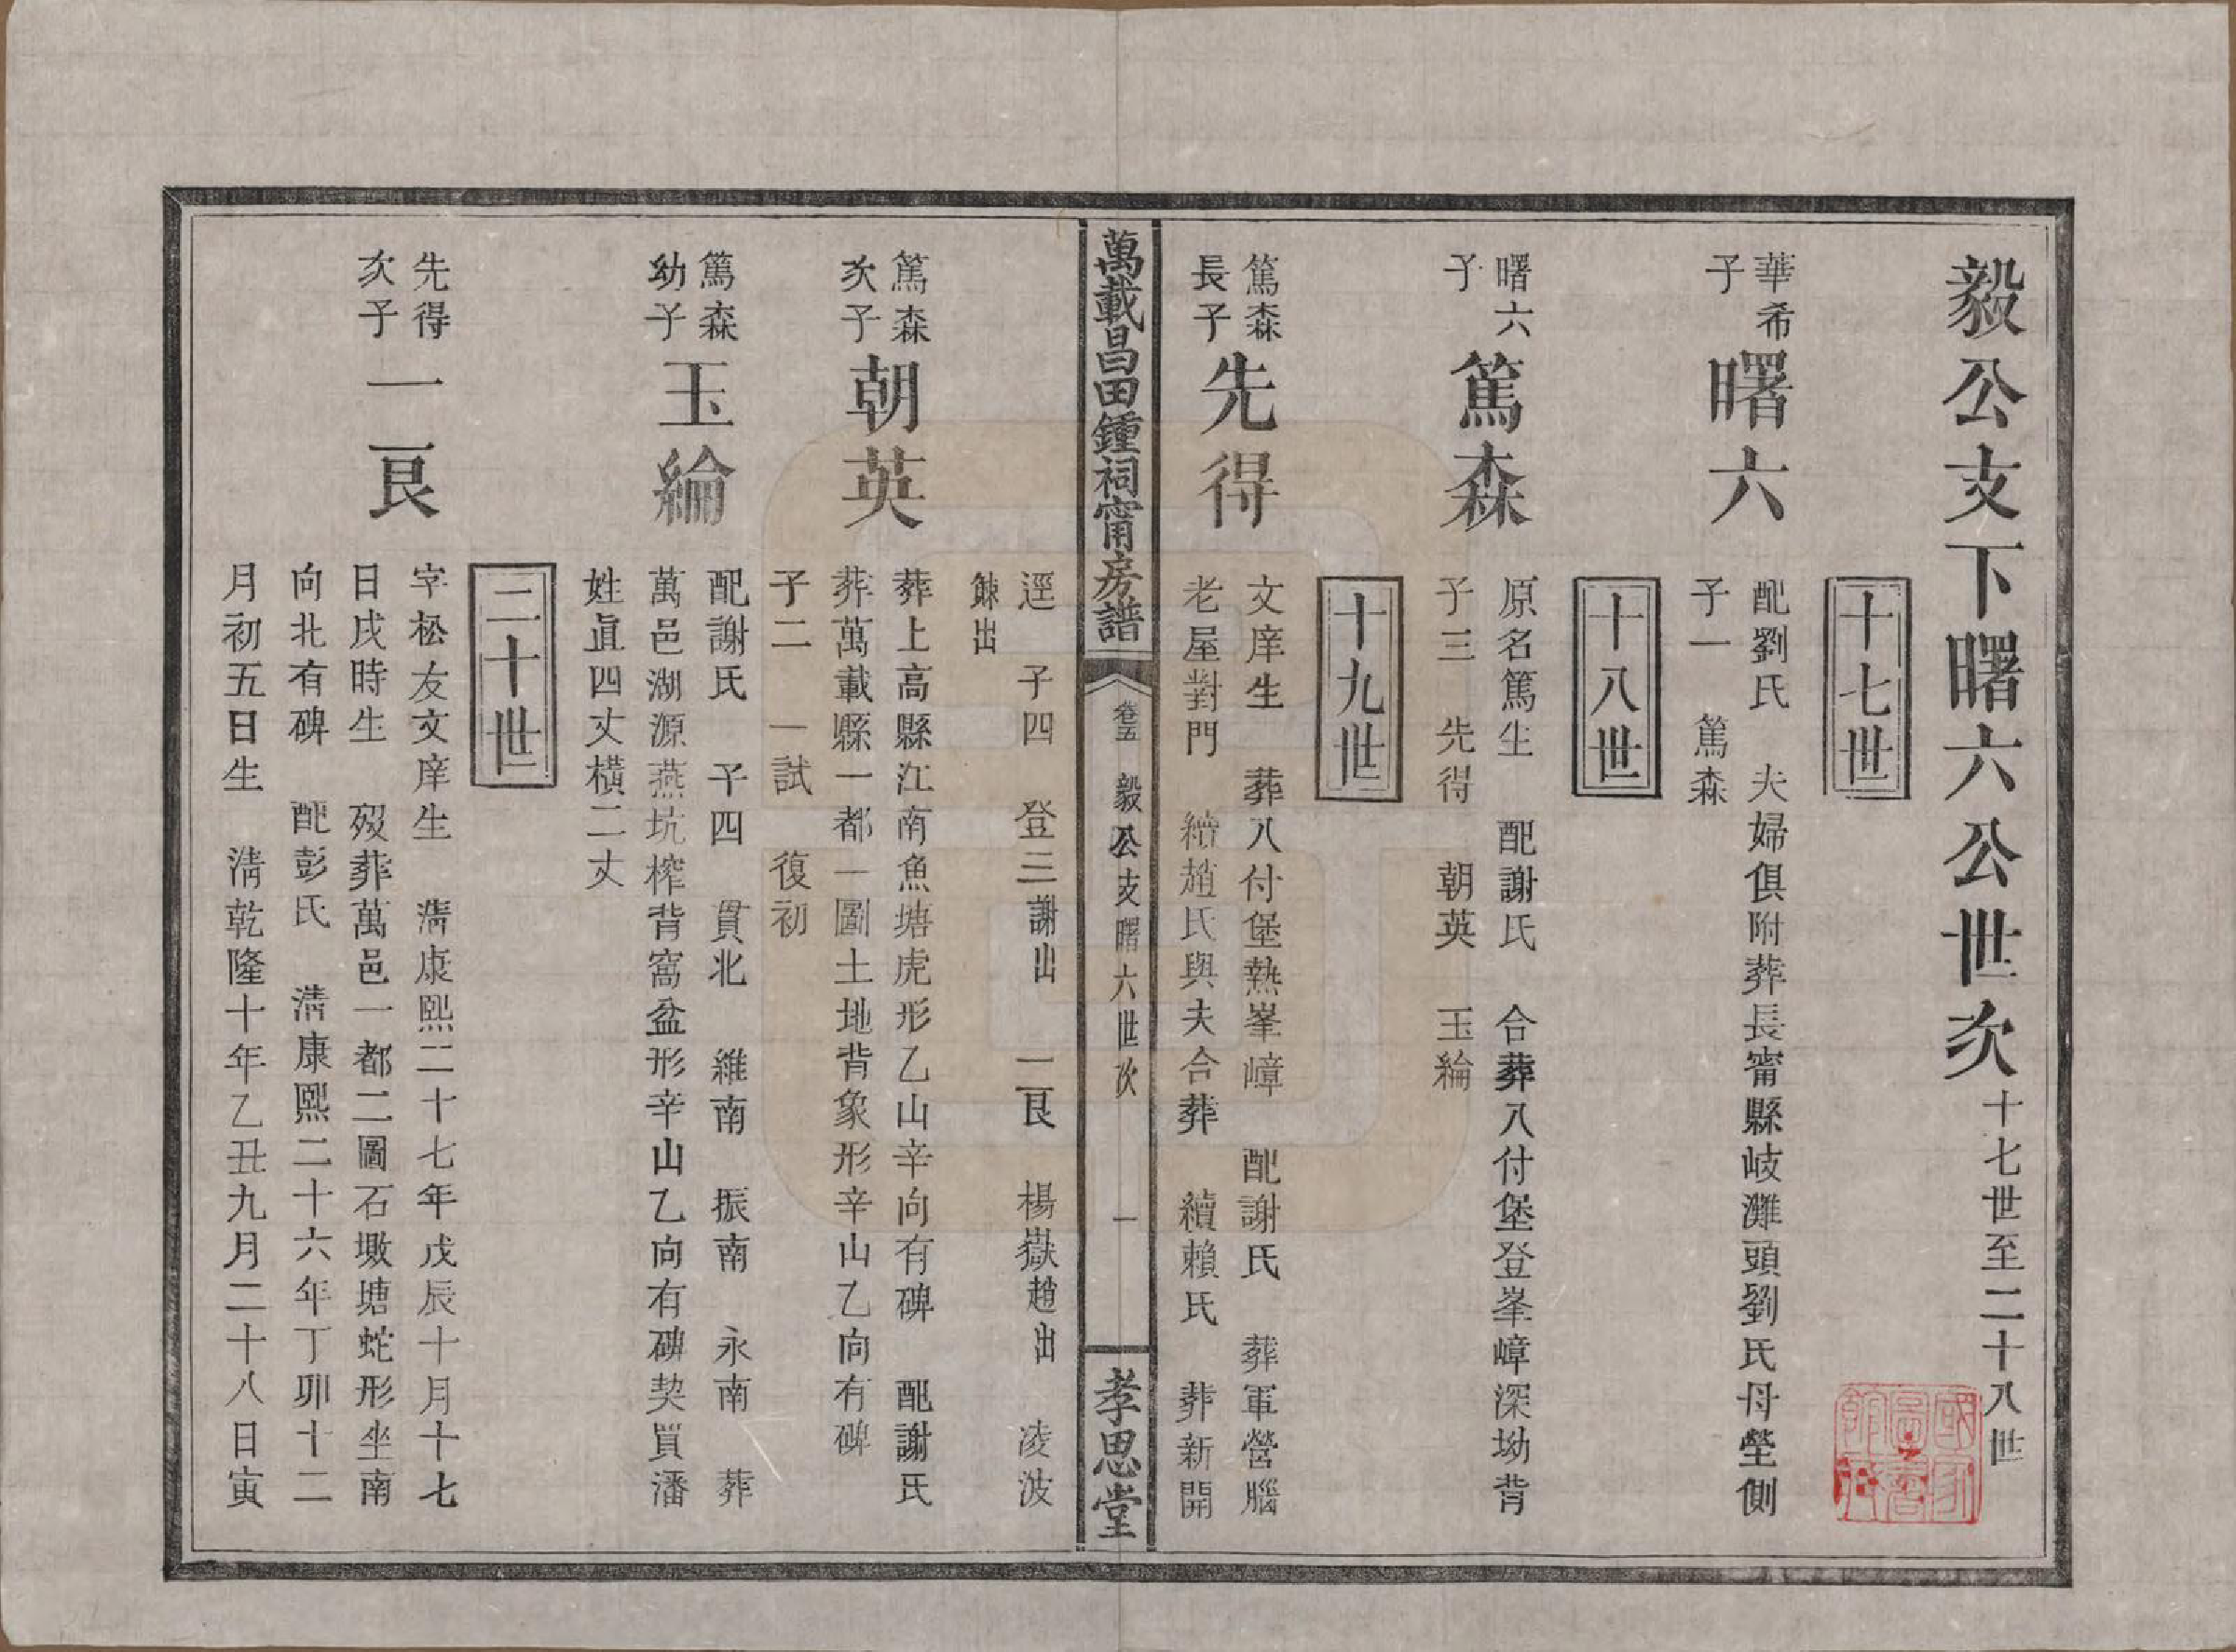 毅公支下曙六公世次十七世至二十八世
十七世
華希
子
曙六
配劉氏　夫婦俱附葬長甯縣岐灘頭劉氏母塋側
子一　篤森
十八世
曙六
子
篤森
原名篤生　配謝氏　合葬八付堡登峯嶂深坳背
子三　先得　朝英　玉綸
十九世
篤森
長子
先得
文庠生　葬八付堡熱峯嶂　配謝氏　葬軍營腦
老屋對門　續趙氏與夫合葬　續賴氏　葬新開
萬載昌田鍾祠甯房譜
卷五　毅公支曙六世次　一
孝思堂
逕　子四　登三謝出　一艮　楊嶽趙出　凌波
賴出
篤森
次子
朝英
葬上高縣江南魚塘虎形乙山辛向有碑　配謝氏
葬萬載縣一都一圖土地背象形辛山乙向有碑
子二　一試　復初
篤森
幼子
玉綸
配謝氏　子四　貫北　維南　振南　永南　葬
萬邑湖源燕坑榨背窩盆形辛山乙向有碑契買潘
姓直四丈橫二丈
二十世
先得
次子
一艮
字松友文庠生　清康熙二十七年戊辰十月十七
日戌時生　歿葬萬邑一都二圖石墩塘蛇形坐南
向北有碑　配彭氏　清康熙二十六年丁卯十二
月初五日生　清乾隆十年乙丑九月二十八日寅